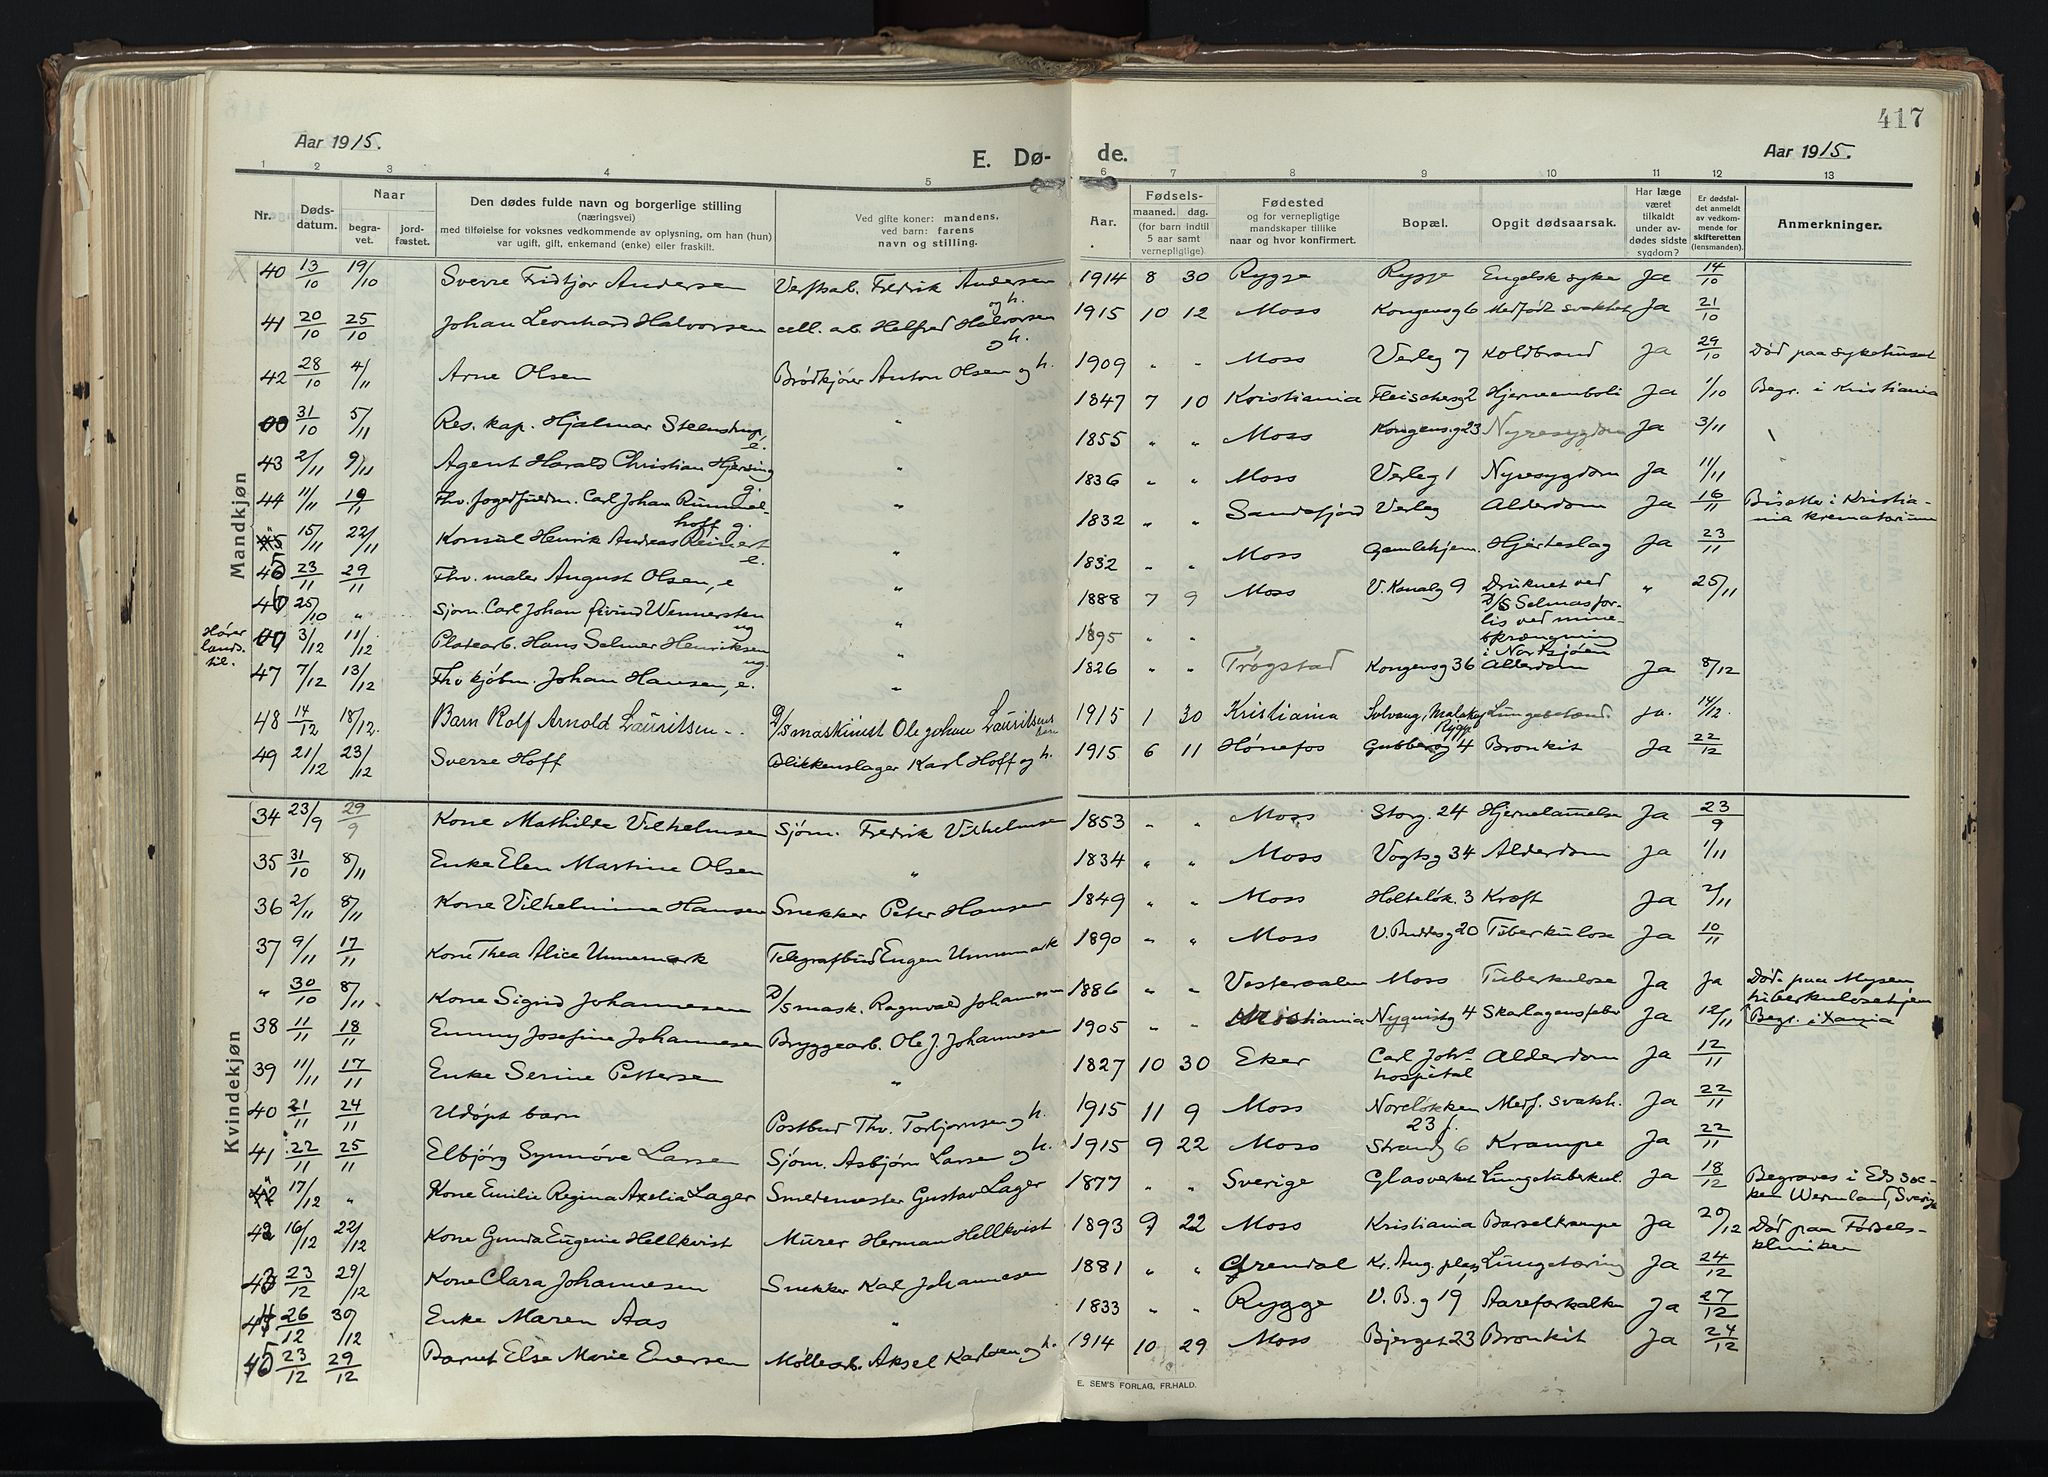 417
Aar 1915.
E. Dø-
de.
Aar 1915.
1 2 3 4 5 6 7 8 9 10 11 12 13
Nr.
Døds-
datum.
Naar
begra-
vet.
jord-
fæstet.
Den dødes fulde navn og borgerlige stilling
(næringsvei)
med tilføielse for voksnes vedkommende av oplysning, om han (hun)
var ugift, gift, enkemand (enke) eller fraskilt.
Ved gifte koner: mandens,
ved barn: farens
navn og stilling.
Aar.
Fødsels-
maaned. dag.
(for barn indtil
5 aar samt
vernepligtige)
Fødested
og for vernepligtige
mandskaper tillike
naar og hvor konfirmert.
Bopæl.
Opgit dødsaarsak.
Har læge
været
tilkaldt
under av-
dødes sidste
sygdom?
Er dødsfal-
det anmeldt
av vedkom-
mende for
skifteretten
(lensmanden).
Anmerkninger.
Mandkjøn
40 13/10 19/10 Sverre Fridtjov Andersen Verftsarb. Fredrik Andersen og h. 1914 8 30 Rygge Rygge Engelsk syke Ja 14/10
41 20/10 25/10 Johan Leonhard Halvorsen cell. arb. Helfred Halvorsen og h. 1915 10 12 Moss Kongensg 6 Medfødt svakhet Ja 21/10
42 28/10 4/11 Arne Olsen Brødkjører Anton Olsen og h. 1909 " " Moss Verleg 7 Koldbrand Ja 29/10 Død paa sykehuset
00 31/10 5/11 Res. kap. Hjalmar Steenstrup, e. " 1847 7 10 Kristiania Fleischesg 2 Hjerneemboli Ja 1/10 Begr. i Kristiania
43 2/11 9/11 Agent Harald Christian Hjersing g. " 1855 " " Moss Kongensg 23 Nyresygdom Ja 3/11
44 11/11 19/11 Fhv. fogedfuldm. Carl Johan Rummel-
hoff g. " 1836 " " Moss Verleg 1 Nyresygdom Ja 11/11
" 15/11 22/11 Konsul Henrik Andreas Reinert e. " 1832 " " Sandefjord Verleg Alderdom Ja 16/11 Bisettes i Kristia-
nia krematorium
45 23/11 29/11 Fhv. maler August Olsen, e " 1832 " " Moss Gamlehjem. Hjerteslag Ja 23/11
46 25/10 " Sjøm. Carl Johan Øivind Wennersten ug " 1888 7 9 Moss V. Kanalg 9 Druknet ved
D/S Selmas for-
lis ved mine-
sprængning
i Nordsjøen " 25/11
Hører
lands.
til.
00 3/12 11/12 Platearb. Hans Selmer Henriksen ug. " 1895 " "
47 7/12 13/12 Fhv kjøbm. Johan Hansen, e. " 1826 " " Trøgstad Kongensg 36 Alderdom Ja 8/12
48 14/12 18/12. Barn Rolf Arnold Lauritsen - . D/s maskinist Ole Johan Lauritsens 1915 1 30 Kristiania Solvang, Malakoff Rygge Lungebetænd. ja. 14/12
49 21/12 23/12 Sverre Hoff Blikkenslager Karl Hoff og h. 1915 6 11 Hønefos Gubberog 4 Bronkit Ja 22/12
Kvindekjøn
34 23/9 29/9 Kone Mathilde Vilhelmsen Sjøm. Fredrik Vilhelmsen 1853 " " Moss Storg. 24 Hjernelammelse Ja 23/9
35 31/10 8/11 Enke Elen Martine Olsen " 1834 " " Moss Vogtsg 34 Alderdom Ja 1/11
36 2/11 8/11 Kone Vilhelmine Hansen Snekker Peter Hansen 1849 " " Moss Holteløk. 3 Kræft Ja 2/11
37 9/11 17/11 Kone Thea Alice Unnemark Telegrafbud Eugen Unnemark 1890 " " Moss V. Buddesg 20 Tuberkulose Ja 10/11
" 30/10 8/11 Kone Sigrid Johannesen D/s mask. Ragnvald Johannesen 1886 " " Vesteraalen Moss Tuberkulose Ja Ja Døde paa Mysen
tuberkulosehjem
Begr. i Xania
38 11/11 18/11 Emmy Josefine Johannesen Bryggearb. Ole J. Johannesen 1905 " " Kristiania Nyquistg 4 Skarlagensfeber Ja 12/11
39 11/11 17/11 Enke Serine Pettersen " 1827 10 30 Eker Carl Johs
hospital Alderdom Ja 12/11
40 21/11 24/11 Udøpt barn Postbud Thv. Torbjørnsen og h. 1915 11 9 Moss Noreløkken
23 f. Medf. svakh. Ja 22/11
41 22/11 25/11 Elbjørg Synnøve Larsen Sjøm. Asbjørn Larsen og h. 1915 9 22 Moss Strandg 6 Krampe Ja 22/11
" 17/12 " Kone Emilie Regina Axelia Lager Smedemester Gustav Lager 1877 " " Sverige Glasverket Lungetuberkul. Ja 18/12 Begraves i Eds soc-
ken Wermland, Sverige
42 16/12 22/12 Kone Gunda Eugenie Hellkvist Murer Herman Hellkvist 1893 9 22 Moss Kristiania Barselkrampe Ja 20/12 Død paa Fødsels-
kliniken
43 23/12 29/12 Kone Clara Johannesen Snekker Karl Johannesen 1881 " " Grendal Kr. Aug. plas Lungetæring Ja 24/12
44 26/12 30/12 Enke Maren Aas " 1833 " " Rygge V. B. g 19 Aareforkalkn Ja 27/12
45 23/12 29/12 Barnet Else Marie Eversen Møllearb. Aksel Karlsen og h. 1914 10 29 Moss Bjerget 23 Bronkit Ja 24/12
E. SEM'S FORLAG, FR.HALD.